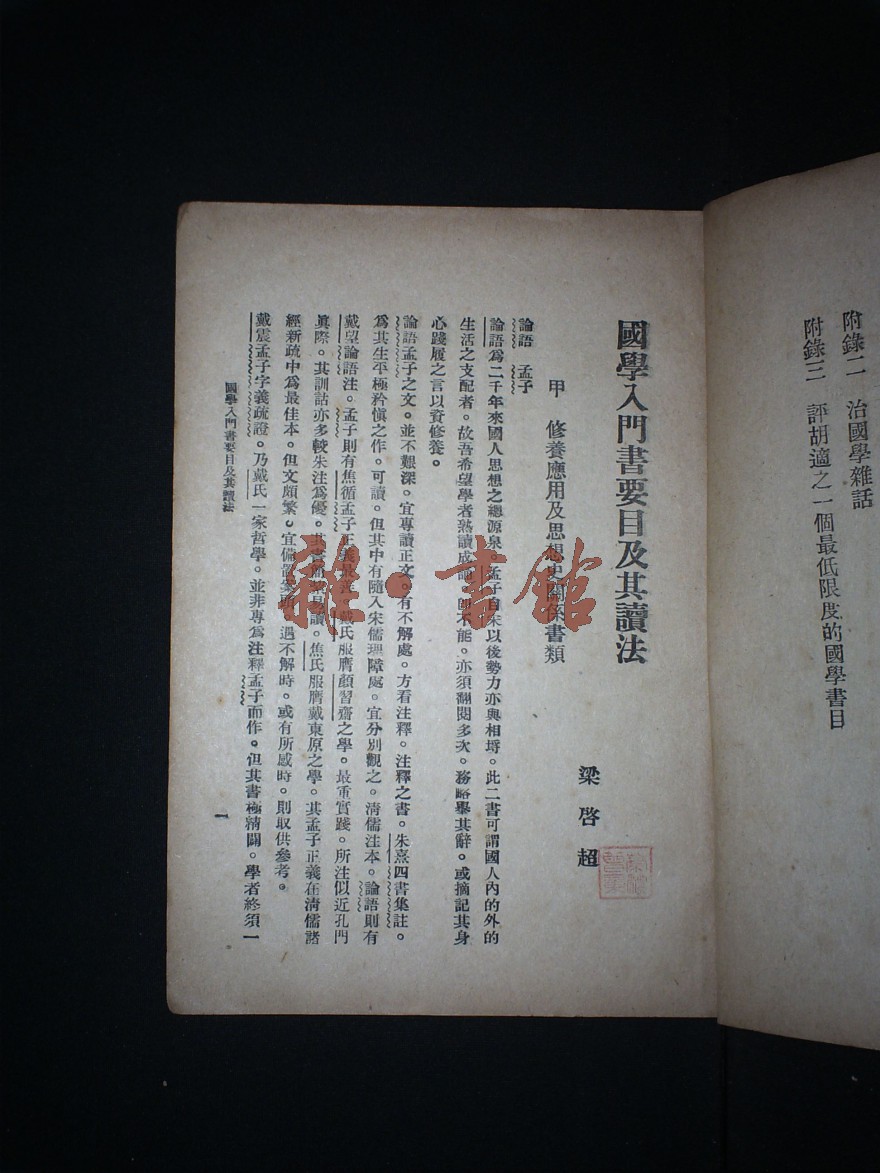 附錄二　治國學雜話
附錄三　評胡適之一個最低限度的國學書目
國學入門書要目及其讀法
梁啓超
甲　修養應用及思想史關係書類
論語　孟子
論語爲二千年來國人思想之總源泉。孟子自宋以後勢力亦與相埒。此二書可謂國人內的外的
生活之支配者。故吾希望學者熟讀成誦。卽不能。亦須翻閱多次。務略舉其辭。或摘記其身
心踐履之言以資修養。
論語孟子之文。並不艱深。宜專讀正文。有不解處。方看注釋。注釋之書。朱熹四書集註。
爲其生平極矜愼之作。可讀。但其中有隨入宋儒理障處。宜分別觀之。淸儒注本。論語則有
戴望論語注。孟子則有焦循孟子正義最善。戴氏服膺顏習齋之學。最重實踐。所注似近孔門
眞際。其訓詁亦多較朱注爲優。其書簡潔易讀。焦氏服膺戴東原之學。其孟子正義在淸儒諸
經新疏中爲最佳本。但文頗繁。宜備置案頭。遇不解時。或有所感時。則取供參考。
戴震孟子字義疏證。乃戴氏一家哲學。並非專爲注釋孟子而作。但其書極精闢。學者終須一
國學入門書要目及其讀法
一
雜·書館